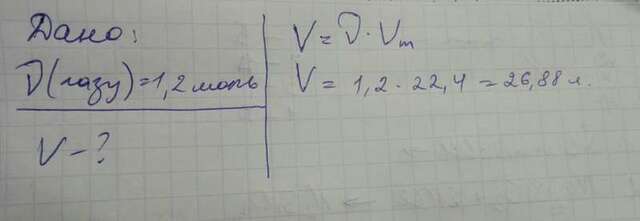 Дано:
ν(газу)=1,2 моль
V-?
V = ν · Vm
V = 1,2 · 22,4 = 26,88 л.